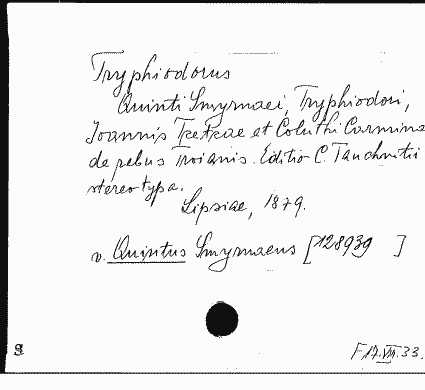 Tryphiodorus
Quinti Smyrnaei, Tryphiodori,
Joannis Tzetzae et Coluthi Carmina
de rebus Troianis. Editio C. Tauchnitii
stereotypa.
Lipsiae, 1829.
v. Quintus Smyrnaeus [128939 ]
F 17.VII.33.